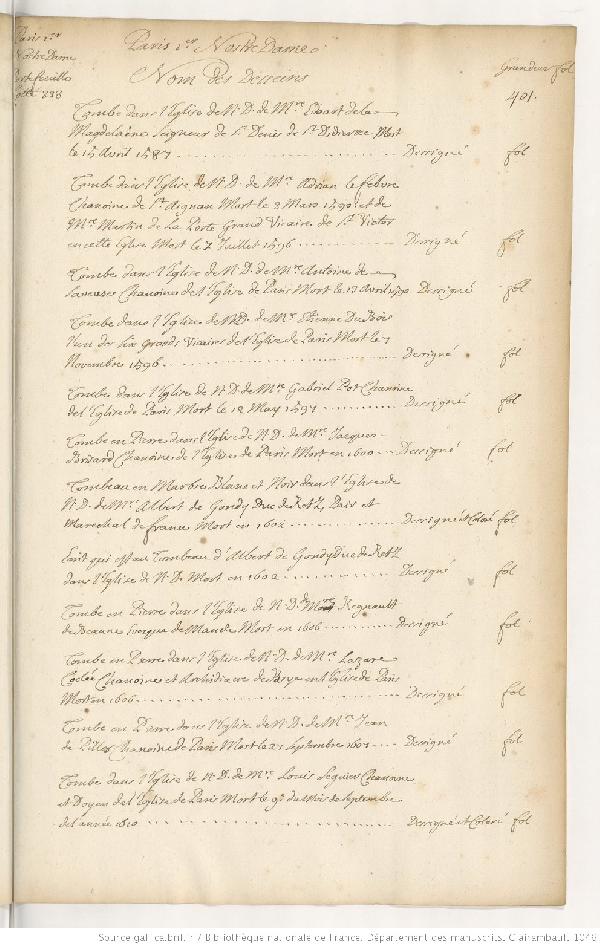 Paris 1er
Nostre Dame
Portefeuille
Cotté 238
Paris 1er Nostre Dame
Nom des Desseins
Grandeur fol
401.
Tombe dans l'Eglise de N. D. de Mre de la
Magdelaine Seigneur de St Denis de St Mort
le 15 Avril 1587 .......... Dessigné fol
Tombe dans l'Eglise de N. D. de Mre Adrian le febvre
Chanoine de St Aignan Mort le 2 Mars 1590 et de
Mre Martin de La Porte Grand Vicaire de St Victor
en cette Eglise Mort le 7 Juillet 1596 .......... Dessigné fol
Tombe dans l'Eglise de N. D. de Mre Antoine de
Chanoine de l'Eglise de Paris Mort le 13 avril Dessigné fol
Tombe dans l'Eglise de N. D. de Mre Etienne Du Bois
l'un des six Grands Vicaires de l'Eglise de Paris Mort le 7
Novembre 1596 .......... Dessigné fol
Tombe dans l'Eglise de N. D. de Mre Gabriel Chanoine
de l'Eglise de Paris Mort le 12 May 1597 .......... Dessigné fol
Tombe en Pierre dans l'Eglise de N. D. de Mre Jacques
Brisard Chanoine de l'Eglise de Paris Mort en 1600 .... Dessigné fol
Tombeau en Marbre Blanc et Noir dans l'Eglise de
N. D. de Mre Albert de Gondy Duc de Retz, Pair et
Mareschal de france Mort en 1602 .......... Dessigné et Coloré fol
qui est au Tombeau d'Albert de Gondy Duc de Retz
dans l'Eglise de N. D. Mort en 1602 .......... Dessigné fol
Tombe en Pierre dans l'Eglise de N. D. de Mre Regnault
de Beaune Evesque de Mande Mort en 1606 .......... Dessigné fol
Tombe en Pierre dans l'Eglise de N. D. de Mre Lazare
Chanoine et Archidiacre de Brye en l'Eglise de Paris
Mort en 1606 .......... Dessigné fol
Tombe en Pierre dans l'Eglise de N. D. de Mre Jean
de Chanoine de Paris Mort le 21 septembre .... Dessigné fol
Tombe dans l'Eglise de N. D. de Mre Louis Seguier Chanoine
et Doyen de l'Eglise de Paris Mort le 9e du Mois de Septembre
de l'année 1610 .......... Dessigné et Coloré fol
Source gallica.bnf.fr / Bibliothèque nationale de France. Département des manuscrits. Clairambault 1046